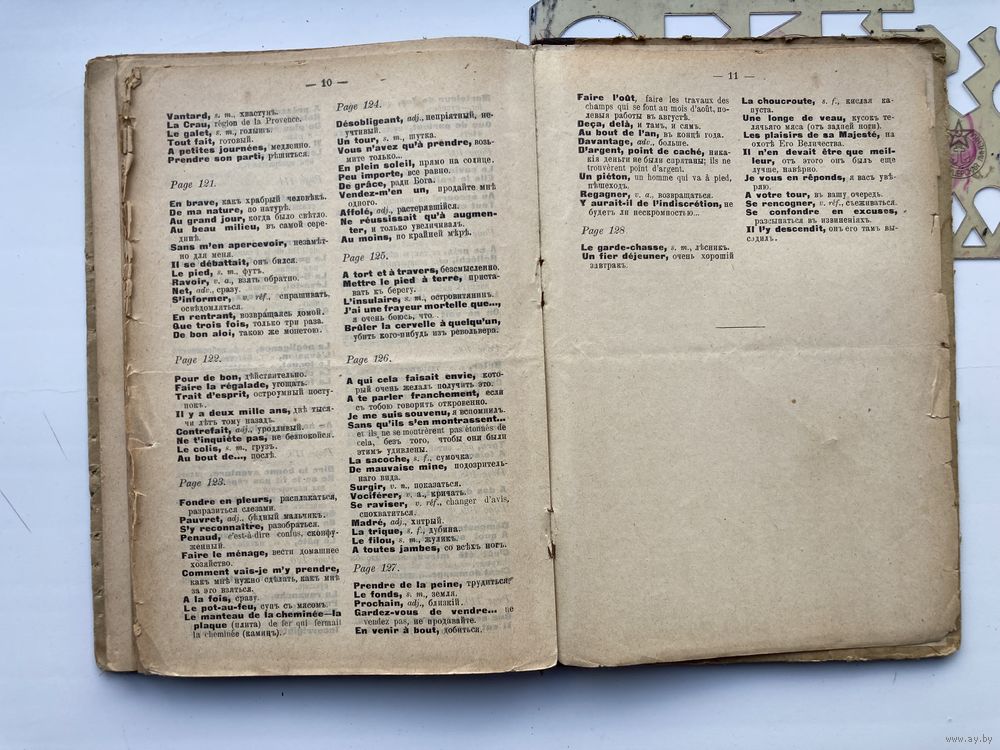 — 10 —
Vantard, s. m., хвастунъ.
La Crau, région de la Provence.
Le galet, s. m., голышъ.
Tout fait, готовый.
A petites journées, медленно.
Prendre son parti, рѣшиться.
Page 121.
En brave, какъ храбрый человѣкъ.
De ma nature, по натурѣ.
Au grand jour, когда было свѣтло.
Au beau milieu, въ самой сере-
динѣ.
Sans m'en apercevoir, незамѣт-
но для меня.
Il se débattait, онъ бился.
Le pied, s. m., футъ.
Ravoir, v. a., взять обратно.
Net, adv., сразу.
S'informer, v. réf., спрашивать,
освѣдомляться.
En rentrant, возвращаясь домой.
Que trois fois, только три раза.
De bon aloi, такою же монетою.
Page 122.
Pour de bon, дѣйствительно.
Faire la régalade, угощать.
Trait d'esprit, остроумный посту-
покъ.
Il y a deux mille ans, двѣ тыся-
чи лѣтъ тому назадъ.
Contrefait, adj., уродливый.
Ne t'inquiète pas, не безпокойся.
Le colis, s. m., грузъ.
Au bout de..., послѣ.
Page 123.
Fondre en pleurs, расплакаться,
разразиться слезами.
Pauvret, adj., бѣдный мальчикъ.
S'y reconnaître, разобраться.
Penaud, c'est-à-dire confus, сконфу-
женный.
Faire le ménage, вести домашнее
хозяйство.
Comment vais-je m'y prendre,
какъ мнѣ нужно сдѣлать, какъ мнѣ
за это взяться.
A la fois, сразу.
Le pot-au-feu, супъ съ мясомъ.
Le manteau de la cheminée—la
plaque (плита) de fer qui fermait
la cheminée (каминъ).
Page 124.
Désobligeant, adj., непріятный, не-
учтивый.
Un tour, s. m., штука.
Vous n'avez qu'à prendre, возь-
мите только...
En plein soleil, прямо на солнце.
Peu importe, все равно.
De grâce, ради Бога.
Vendez-m'en un, продайте мнѣ
одного.
Affolé, adj., растерявшійся.
Ne réussissait qu'à augmen-
ter, и только увеличивалъ.
Au moins, по крайней мѣрѣ.
Page 125.
A tort et à travers, безсмысленно.
Mettre le pied à terre, приста-
вать къ берегу.
L'insulaire, s. m., островитянинъ.
J'ai une frayeur mortelle que...,
я очень боюсь, что.
Brûler la cervelle à quelqu'un,
убить кого-нибудь изъ револьвера.
Page 126.
A qui cela faisait envie, кото-
рый очень желалъ получить это.
A te parler franchement, если
съ тобою говорить откровенно.
Je me suis souvenu, я вспомнилъ.
Sans qu'ils s'en montrassent...
et ils ne se montrèrent pas étonnés de
cela, безъ того, чтобы они были
этимъ удивлены.
La sacoche, s. f., сумочка.
De mauvaise mine, подозритель-
наго вида.
Surgir, v. n., показаться.
Vociférer, v. a., кричать.
Se raviser, v. réf., changer d'avis,
спохватиться.
Madré, adj., хитрый.
La trique, s. f., дубина.
Le filou, s. m., жуликъ.
A toutes jambes, со всѣхъ ногъ.
Page 127.
Prendre de la peine, трудиться.
Le fonds, s. m., земля.
Prochain, adj., близкій.
Gardez-vous de vendre... ne
vendez pas, не продавайте.
En venir à bout, добиться.
— 11 —
Faire l'oût, faire les travaux des
champs qui se font au mois d'août, по-
левыя работы въ августѣ.
Deça, delà, и тамъ, и сямъ.
Au bout de l'an, въ концѣ года.
Davantage, adv., больше.
D'argent, point de caché, ника-
кія деньги не были спрятаны; ils ne
trouvèrent point d'argent.
Un piéton, un homme qui va à pied,
пѣшеходъ.
Regagner, v. a., возвращаться.
Y aurait-il de l'indiscrétion, не
будетъ ли нескромностью...
Page 128
Le garde-chasse, s. m., лѣсникъ.
Un fier déjeuner, очень хорошій
завтракъ.
La choucroute, s. f., кислая ка-
пуста.
Une longe de veau, кусокъ те-
лячьяго мяса (отъ задней ноги).
Les plaisirs de sa Majesté, на
охотѣ Его Величества.
Il n'en devait être que meil-
leur, отъ этого онъ былъ еще
лучше, навѣрно.
Je vous en réponds, я васъ увѣ-
ряю.
A votre tour, въ вашу очередь.
Se rencogner, v. réf., съеживаться.
Se confondre en excuses,
разсыпаться въ извиненіяхъ.
Il l'y descendit, онъ его тамъ вы-
садилъ.
www.ay.by